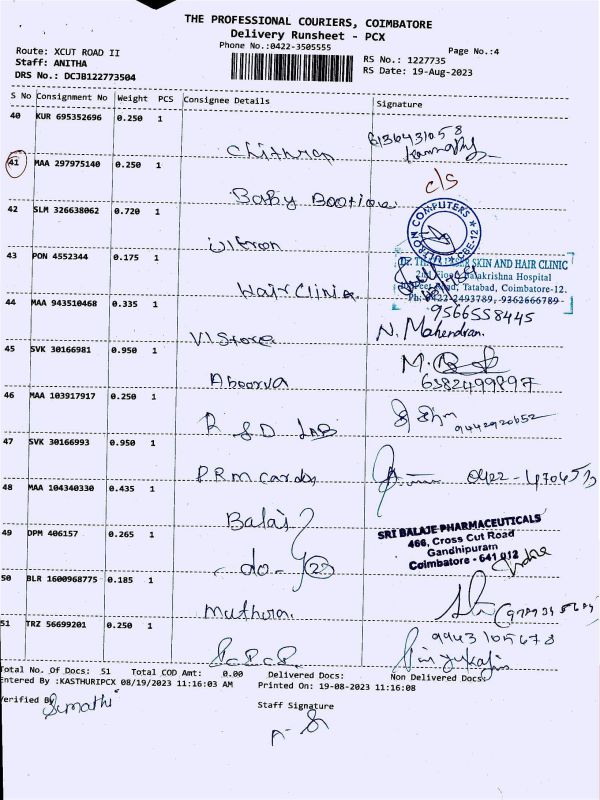 THE PROFESSIONAL COURIERS, COIMBATORE
Delivery Runsheet - PCX
Phone No.:0422-3505555
Page No.:4
Route: XCUT ROAD II
Staff: ANITHA
DRS No.: DCJB122773504
RS No.: 1227735
RS Date: 19-Aug-2023
S No Consignment No Weight PCS Consignee Details Signature
40 KUR 695352696 0.250 1
41 MAA 297975140 0.250 1
Baby
c/s
42 SLM 326638062 0.720 1
COMPUTERS
CBE-12
43 PON 4552344 0.175 1
Hair Clinic
SKIN AND HAIR CLINIC
Balakrishna Hospital
Tatabad, Coimbatore-12.
Ph: 0422-2493789, 9362666789
9566558445
44 MAA 943510468 0.335 1
V1 Store
N. Mahendran.
45 SVK 30166981 0.950 1
Aboorva
6382499897
46 MAA 103917917 0.250 1
R & D LAB
9442920652
47 SVK 30166993 0.950 1
P.R.M cards
48 MAA 104340330 0.435 1
Balaji
SRI BALAJE PHARMACEUTICALS
466, Cross Cut Road
Gandhipuram
Coimbatore - 641 012
49 DPM 406157 0.265 1
- do - 23
50 BLR 1600968775 0.185 1
51 TRZ 56699201 0.250 1
9943105678
Total No. Of Docs: 51 Total COD Amt: 0.00 Delivered Docs: Non Delivered Docs:
Entered By :KASTHURIPCX 08/19/2023 11:16:03 AM Printed On: 19-08-2023 11:16:08
Verified By Sumathi
Staff Signature